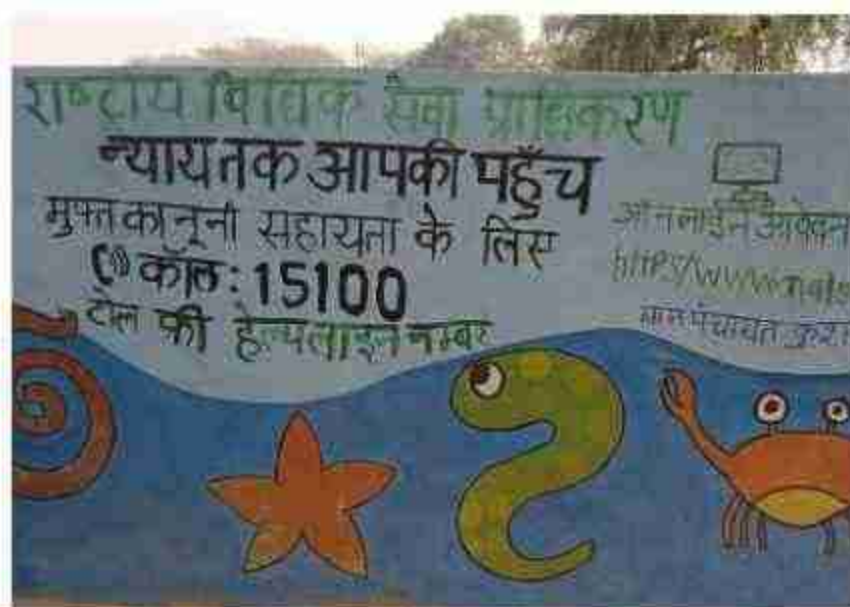 राष्ट्रीय विधिक सेवा प्राधिकरण
न्याय तक आपकी पहुँच
मुफ्त कानूनी सहायता के लिए
कॉल: 15100
टोल फ्री हेल्पलाइन नम्बर
ऑनलाईन आवेदन
https/www.nals